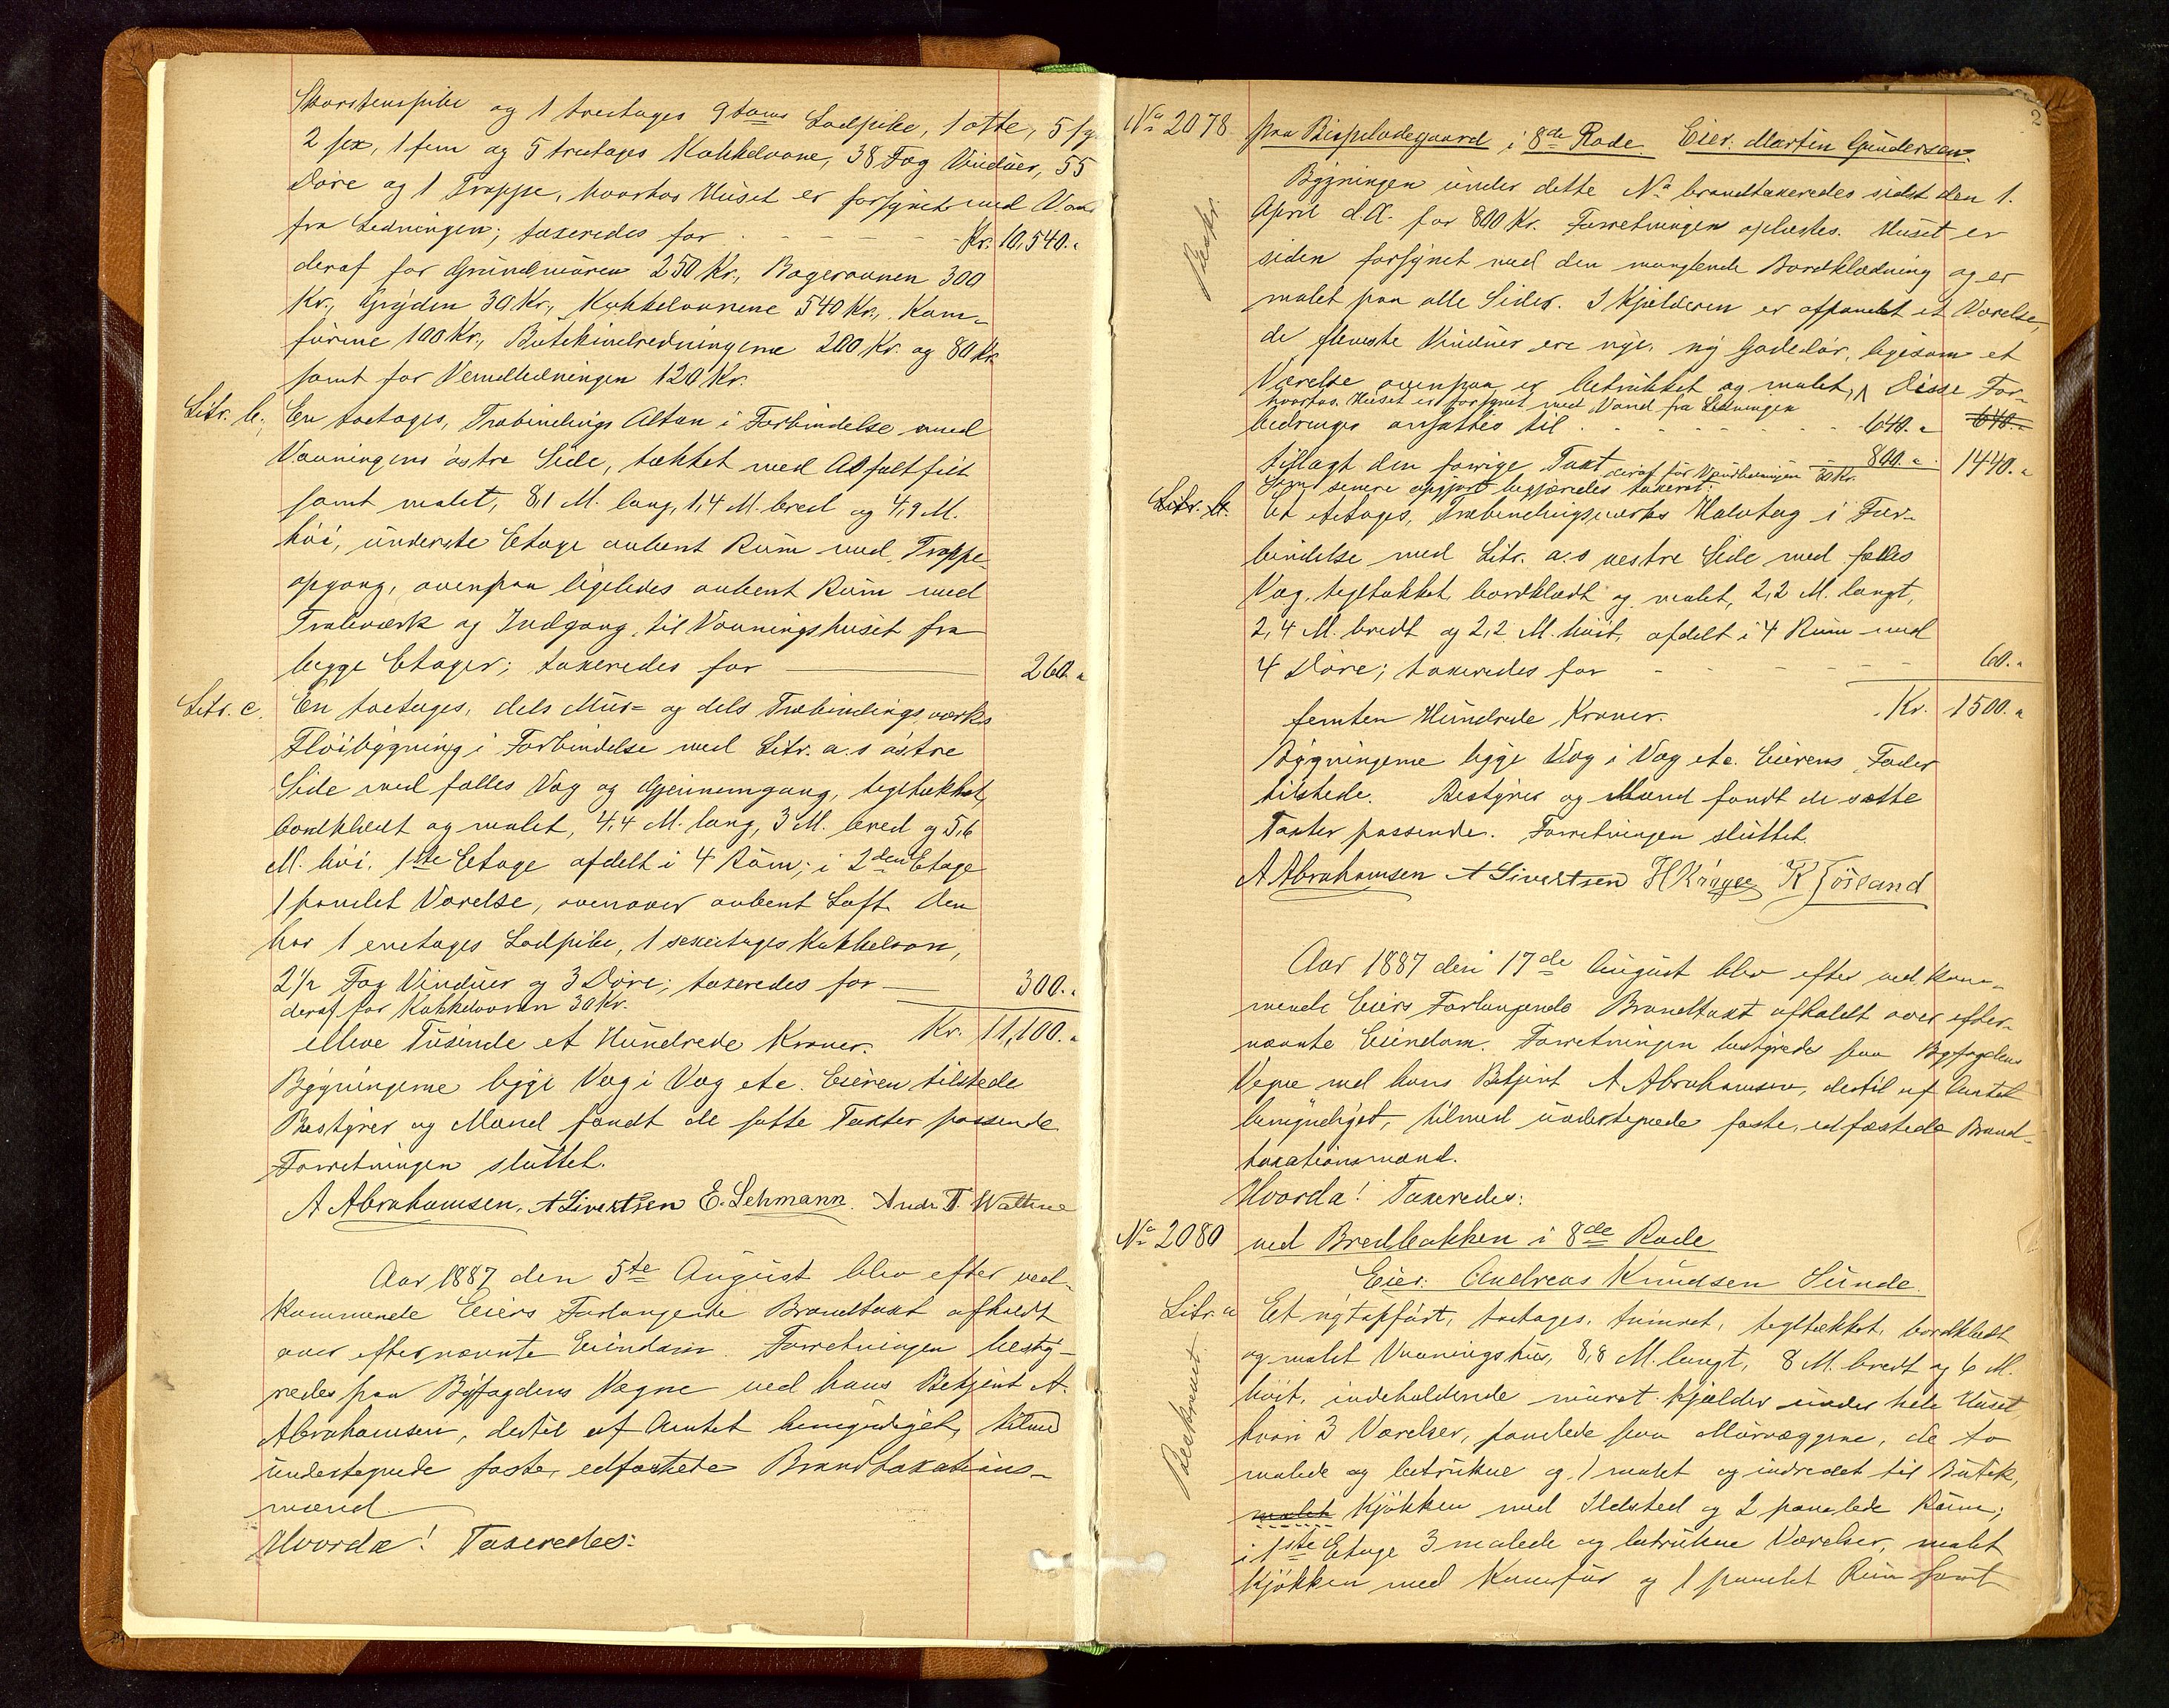 Skorstenspibe og 1 treetages 9 toms Lodpibe, 1 otte, 5 syv
2 sex, 1 fem og 5 treetages Kakkelovne, 38 Fag Vinduer, 55
Döre og 1 Trappe, hvorhos Huset er forsynet med Vand
fra Ledningen; taxeredes for - - - - Kr. 10,540.„
deraf for Grundmuren 250 Kr., Bagerovnen 300
Kr., Gryden 30 Kr., Kakkelovnene 540 Kr., Kom-
fürene 100 Kr., Butikindredningerne 200 Kr. og 80 Kr.
samt for Vandledningen 120 Kr.
Litr. b. En toetages, Træbindings Altan i Forbindelse med
Vaaningens östre Side, tækket med Asfaltfilt
samt malet, 8,1 M. lang, 1,4 M. bred og 4,9 M.
höi, underste Etage aabent Rum med Trappe-
opgang, ovenpaa ligeledes aabent Rum med
Traleværk og Indgang til Vaaningshuset fra
begge Etager; taxeredes for 260.„
Litr. c. En toetages, dels Mur- og dels Træbindingsværks
Flöibygning i Forbindelse med Litr. a.s östre
Side med fælles Væg og Gjennemgang, tegltækket,
bordklædt og malet, 4,4 M. lang, 3 M. bred og 5,6
M. höi. 1ste Etage afdelt i 4 Rum; i 2den Etage
1 panelet Værelse, ovenover aabent Loft. Den
har 1 enetages Lodpibe, 1 sexetages Kakkelovn,
2½ Fag Vinduer og 3 Döre; taxeredes for 300.„
deraf for Kakkelovnen 30 Kr.
elleve Tusinde et Hundrede Kroner. Kr. 11,100.„
Bygningerne ligge Væg i Væg etc. Eieren tilstede
Bestyrer og Mænd fandt de satte Taxter passende
Forretningen sluttet.
A Abrahamsen. A Sivertsen E. Lehmann. Andr. T. Wathne
Aar 1887 den 5te August blev efter ved-
kommende Eiers Forlangende Brandtaxt afholdt
over efternævnte Eiendom. Forretningen besty-
redes paa Byfogdens Vegne ved hans Betjent A.
Abrahamsen, dertil af Amtet bemyndiget, tilmed
undertegnede faste, edfæstede Brandtaxations-
mænd.
Hvorda! Taxeredes:
2
No 2078 paa Bispeladegaard i 8de Rode. Eier: Martin Gundersen.
Beskr.
Bygningen under dette No brandtaxeredes sidst den 1.
April d.A. for 800 Kr. Forretningen oplæstes. Huset er
siden forsynet med den manglende Bordklædning og er
malet paa alle Sider. I Kjælderen er afpanelet et Værelse,
de fleste Vinduer ere nye, ny Gadedör, ligesom et
Værelse ovenpaa er betrukket og malet, Disse For-
hvorhos Huset er forsynet med Vand fra Ledningen
bedringer ansattes til - - - 640.„ 640.„
tillagt den forrige Taxt 800.„ 1440.„
deraf for Vandledningen 30 Kr.
Som senere opgjort begjæredes taxeret:
Litr. b. Et etetages, Træbindingsværks Halvtag i For-
bindelse med Litr. a.s vestre Side med fælles
Væg, tegltækket, bordklædt og malet, 2,2 M. langt,
2,4 M. bredt og 2,2 M. höit, afdelt i 4 Rum med
4 Döre; taxeredes for - - - 60.„
femten Hundrede Kroner. Kr. 1500.„
Bygningerne ligge Væg i Væg etc. Eierens Fader
tilstede. Bestyrer og Mænd fandt de satte
Taxter passende. Forretningen sluttet.
A Abrahamsen A Sivertsen H Kröger K Josland
Aar 1887 den 17de August blev efter vedkom-
mende Eiers Forlangende Brandtaxt afholdt over efter-
nævnte Eiendom. Forretningen bestyredes paa Byfogdens
Vegne ved hans Betjent A Abrahamsen, dertil af Amtet
bemyndiget, tilmed undertegnede faste, edfæstede Brand-
taxationsmænd.
Hvorda! Taxeredes:
No 2080 ved Bredbakken i 8de Rode
Eier: Andreas Knudsen Sunde.
Beskrevet
Litr. a Et nyopfört, toetages, tømret, tegltækket, bordklædt
og malet Vaaningshus, 8,8 M. langt, 8 M. bredt og 6 M.
höit, indeholdende muret Kjælder under hele Huset,
hvori 3 Værelser, panelede paa Murvæggene, de to
malede og betrukne og 1 malet og indredet til Butik,
malet Kjökken med Ildsted og 2 panelede Rum;
i 1ste Etage 3 malede og betrukne Værelser, malet
Kjökken med Komfür og 1 panelet Rum samt